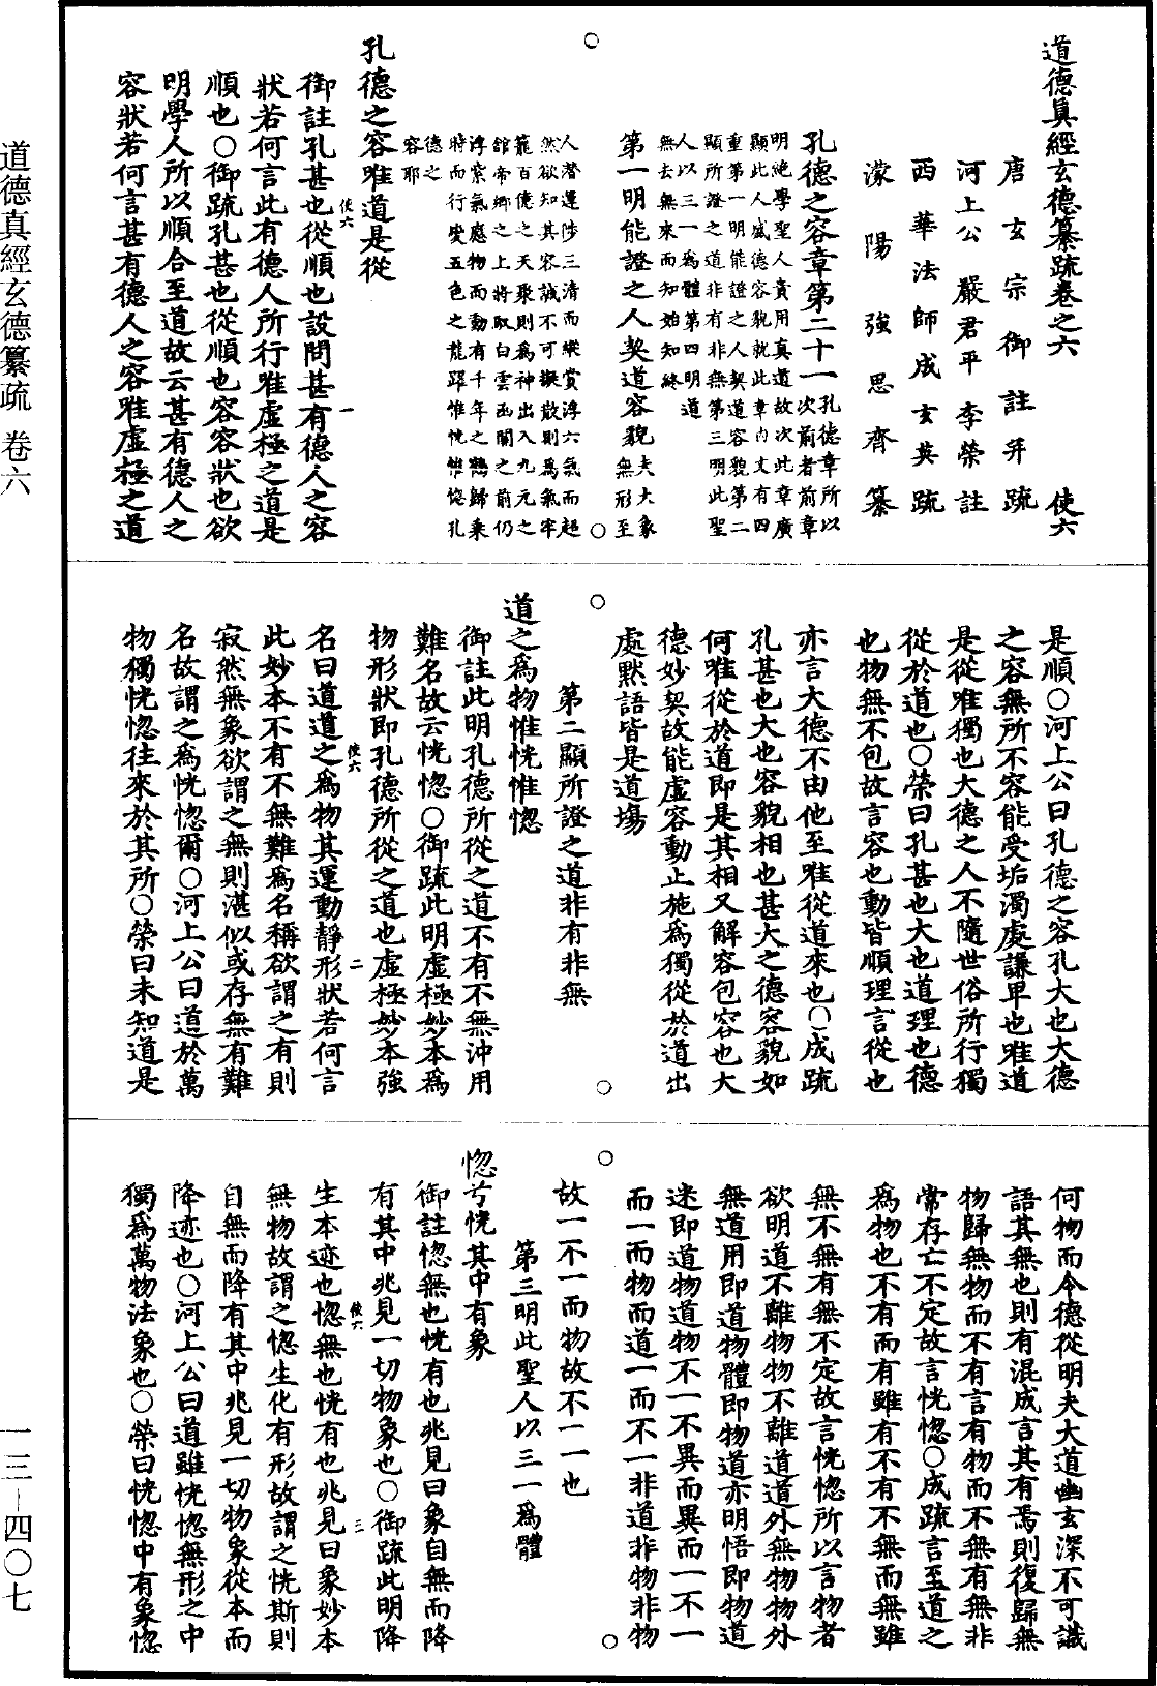 道德真經玄德纂疏卷之六　使六
唐玄宗御註并疏
河上公嚴君平李榮註
西華法師成玄英疏
濛陽強思齊纂
孔德之容章第二十一
孔德章所以次前者前章
明絶學聖人貴用真道故次此章廣
顯此人盛德容貌就此章内文有四
重第一明能證之人契道容貌第二
顯所證之道非有非無第三明此聖
人以三一為體第四明道
無去無來而知始知終
第一明能證之人契道容貌
夫大象
無形至
人潛運陟三清而縱賞浮六氣而超
然欲知其容誠不可擬散則為氣牢
籠百億之天聚則為神出入九元之
館帝鄉之上將取白雲函關之前仍
浮紫氣應物而動有千年之鶴歸乘
時而行變五色之龍躍惟恍惟惚孔
德之
容耶
孔德之容唯道是從
御註孔甚也從順也設問甚有德人之容
狀若何言此有德人所行唯虛極之道是
順也○御疏孔甚也從順也容容狀也欲
明學人所以順合至道故云甚有德人之
容狀若何言甚有德人之容唯虛極之道
使六　一
是順○河上公曰孔德之容孔大也大德
之容無所不容能受垢濁處謙卑也唯道
是從唯獨也大德之人不隨世俗所行獨
從於道也○榮曰孔甚也大也道理也德
也物無不包故言容也動皆順理言從也
亦言大德不由他至唯從道來也○成疏
孔甚也大也容貌相也甚大之德容貌如
何唯從於道即是其相又解容包容也大
德妙契故能虛容動止施為獨從於道出
處默語皆是道場
第二顯所證之道非有非無
道之為物惟恍惟惚
御註此明孔德所從之道不有不無沖用
難名故云恍惚○御疏此明虛極妙本為
物形狀即孔德所從之道也虛極妙本強
名曰道道之為物其運動靜形狀若何言
此妙本不有不無難為名稱欲謂之有則
寂然無象欲謂之無則湛似或存無有難
名故謂之為恍惚爾○河上公曰道於萬
物獨恍惚往來於其所○榮曰未知道是
使六　二
何物而令德從明夫大道幽玄深不可識
語其無也則有混成言其有焉則復歸無
物歸無物而不有言有物而不無有無非
常存亡不定故言恍惚○成疏言至道之
為物也不有而有雖有不有不無而無雖
無不無有無不定故言恍惚所以言物者
欲明道不離物物不離道道外無物物外
無道用即道物體即物道亦明悟即物道
迷即道物道物不一不異而異而一不一
而一而物而道一而不一非道非物非物
故一不一而物故不一一也
第三明此聖人以三一為體
惚兮恍其中有象
御註惚無也恍有也兆見曰象自無而降
有其中兆見一切物象也○御疏此明降
生本迹也惚無也恍有也兆見曰象妙本
無物故謂之惚生化有形故謂之恍斯則
自無而降有其中兆見一切物象從本而
降迹也○河上公曰道雖恍惚無形之中
獨為萬物法象也○榮曰恍惚中有象惚
使六　三
道德真經玄德纂疏　卷六
一三-四〇七